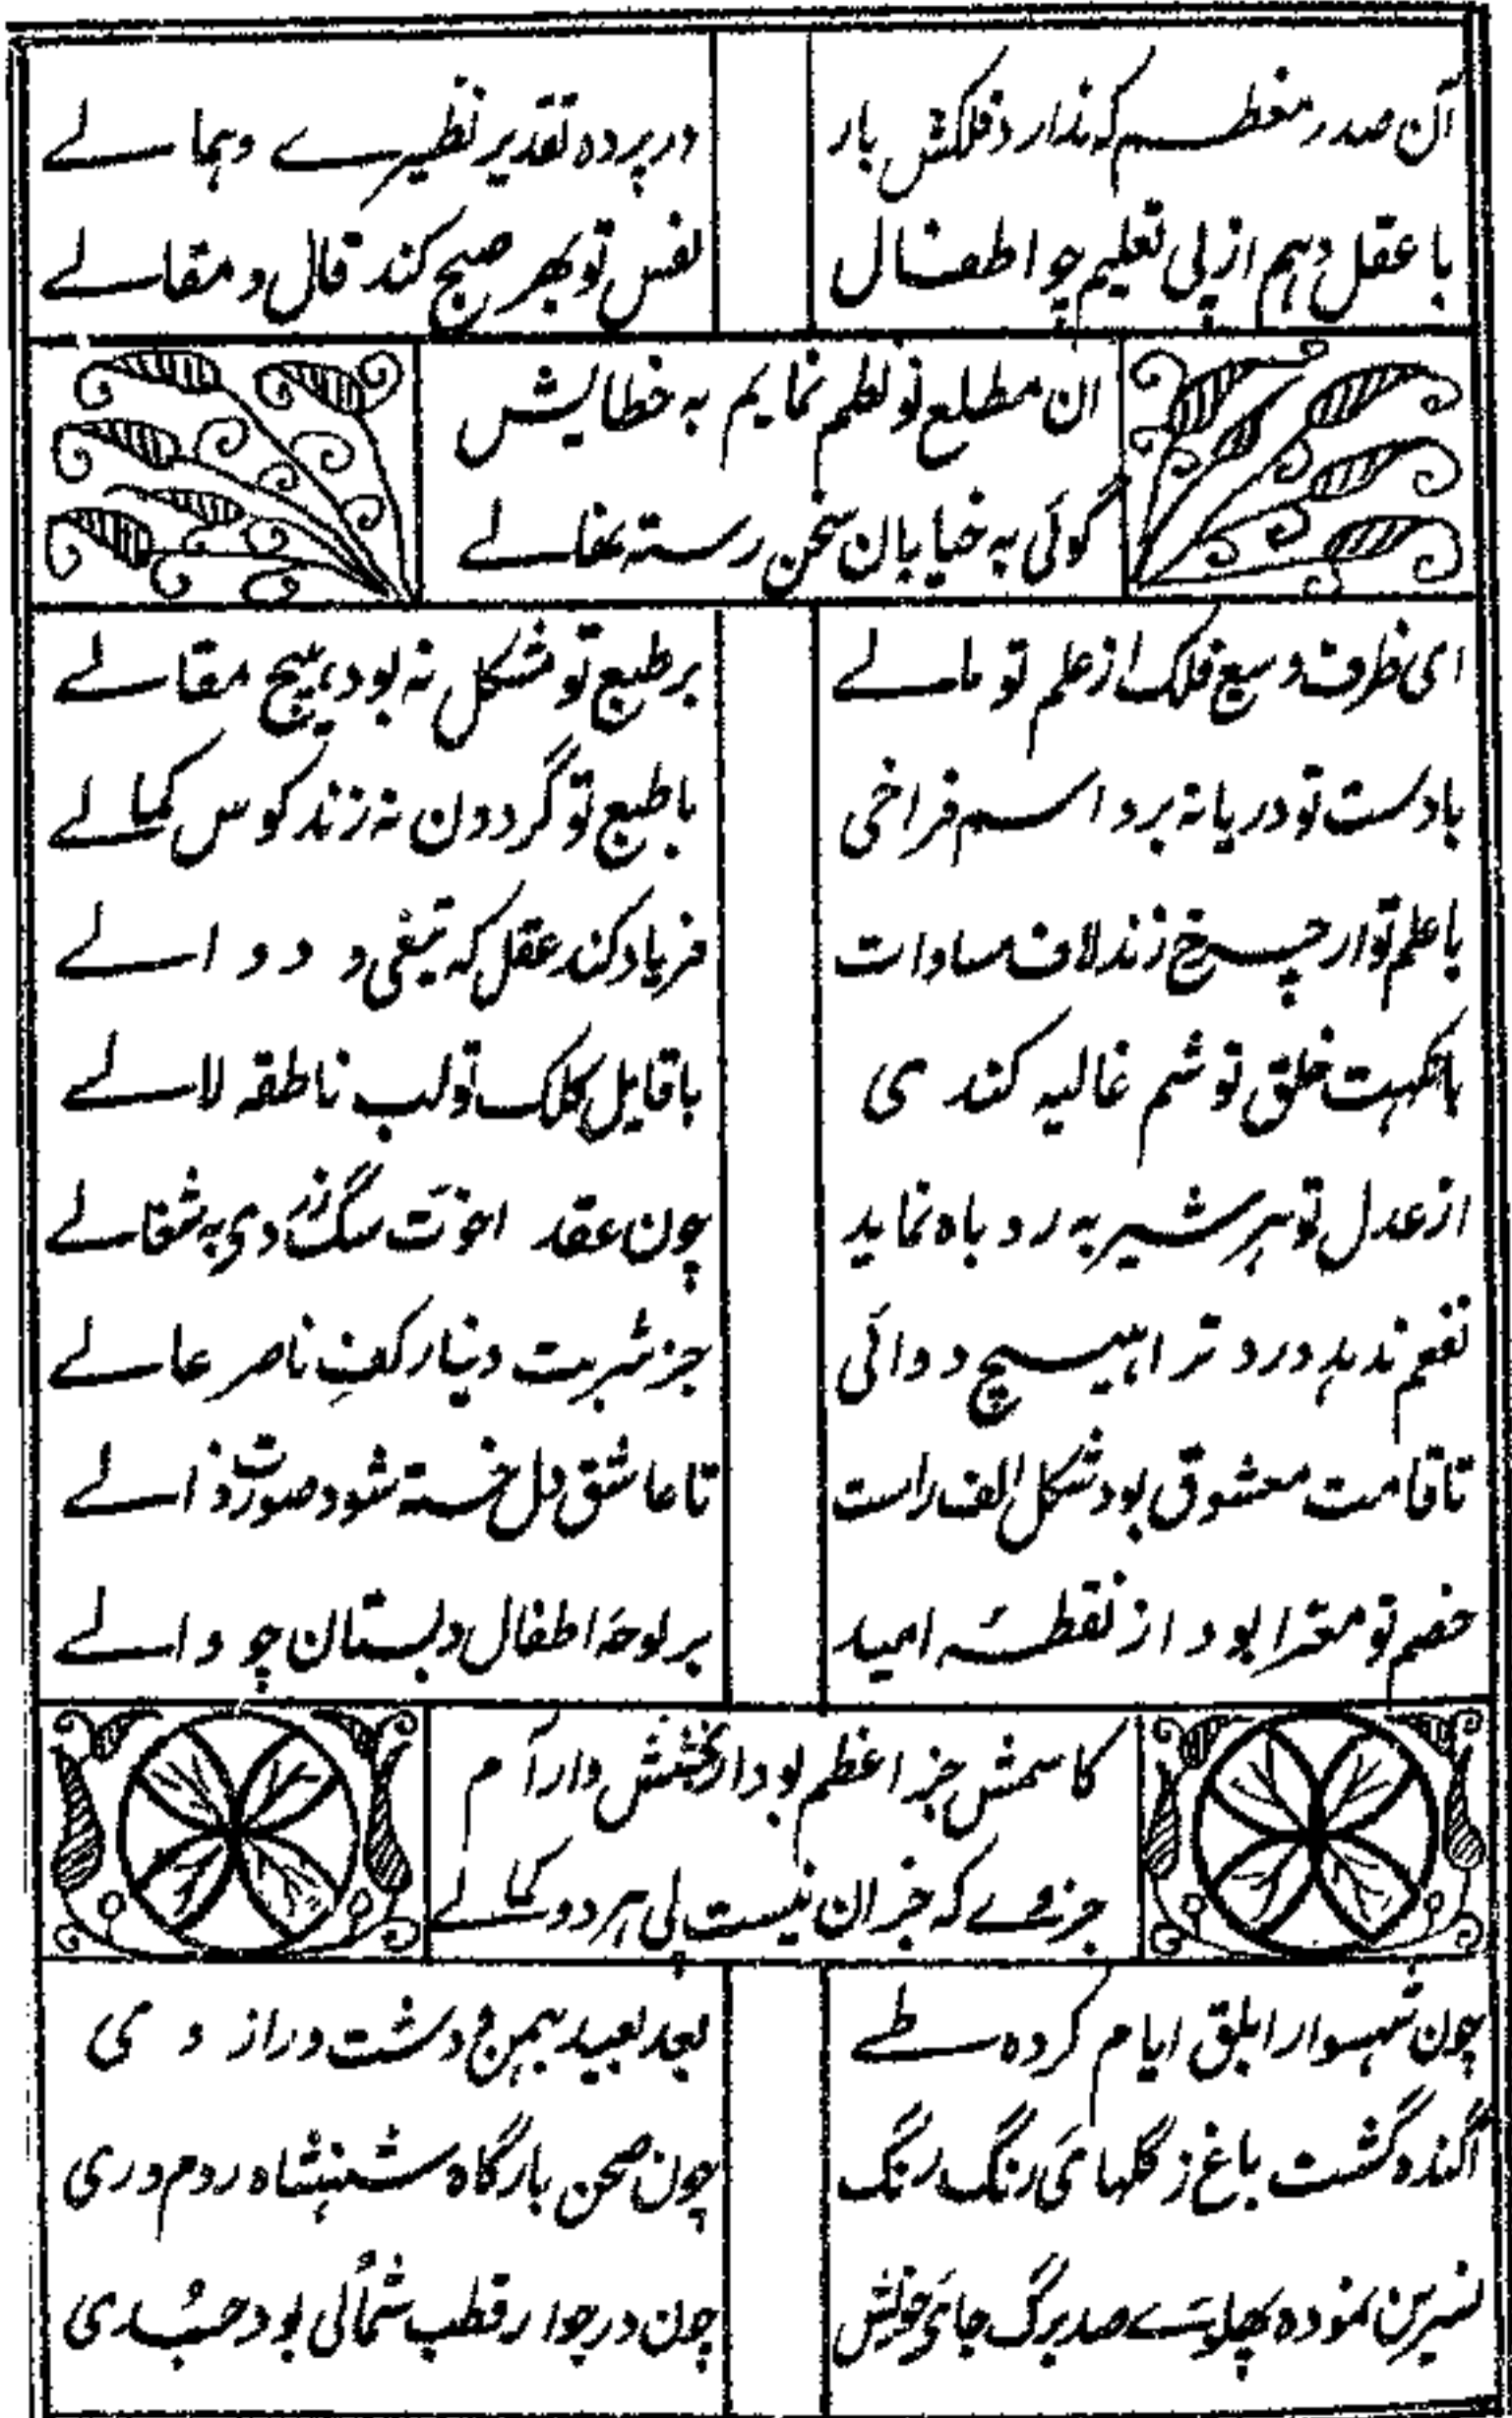 آن صدر معظم که ندارد فلکش بار
در پرده تقدیر نظیرے وہمالے
با عقل دہم از پی تعلیم چو اطفال
نفس تو بہر صبح کند قال و مقالے
ان مطلع نو نظم نمایم به خطابش
گوئی به خیابان سخن رسته نہالے
ای ظرف وسیع فلک از علم تو مالے
بر طبع تو مشکل نه بود ہیچ مقالے
با دست تو دریا نه برد اسم فراخی
با طبع تو گردون نه زند کوس کمالے
با علم تو ار چرخ زند لاف مساوات
فریاد کند عقل که تبغی و دوالے
با نکہت خلق تو شم غالیه کندی
با قایل کلک تو لب ناطقه لالے
از عدل تو ہر شیر به روباه نماید
چون عقد اخوت سگ زردی به شغالے
نفعم ندہد درد ترا ہیچ دوائی
جز شربت دینار کفِ ناصر عالے
تا قامت معشوق بود شکل الف راست
تا عاشق دل خسته شود صورت ذالے
خصم تو معرا بود از نقطۂ امید
بر لوحۂ اطفال دبستان چو دالے
کاسمش جز اعظم بود از بخشش دارام
جزوے که جز ان نیست لی ہر دو کمالے
چون شہسوار ابلق ایام کرده طے
بعد بعید بہمن و دشت دراز دی
آگنده گشت باغ ز گلہائ رنگ رنگ
چون صحن بارگاه شہنشاه روم و ری
نسرین نموده صد برگ جائ خویش
چون در جوار قطب شمالی بود جُدی